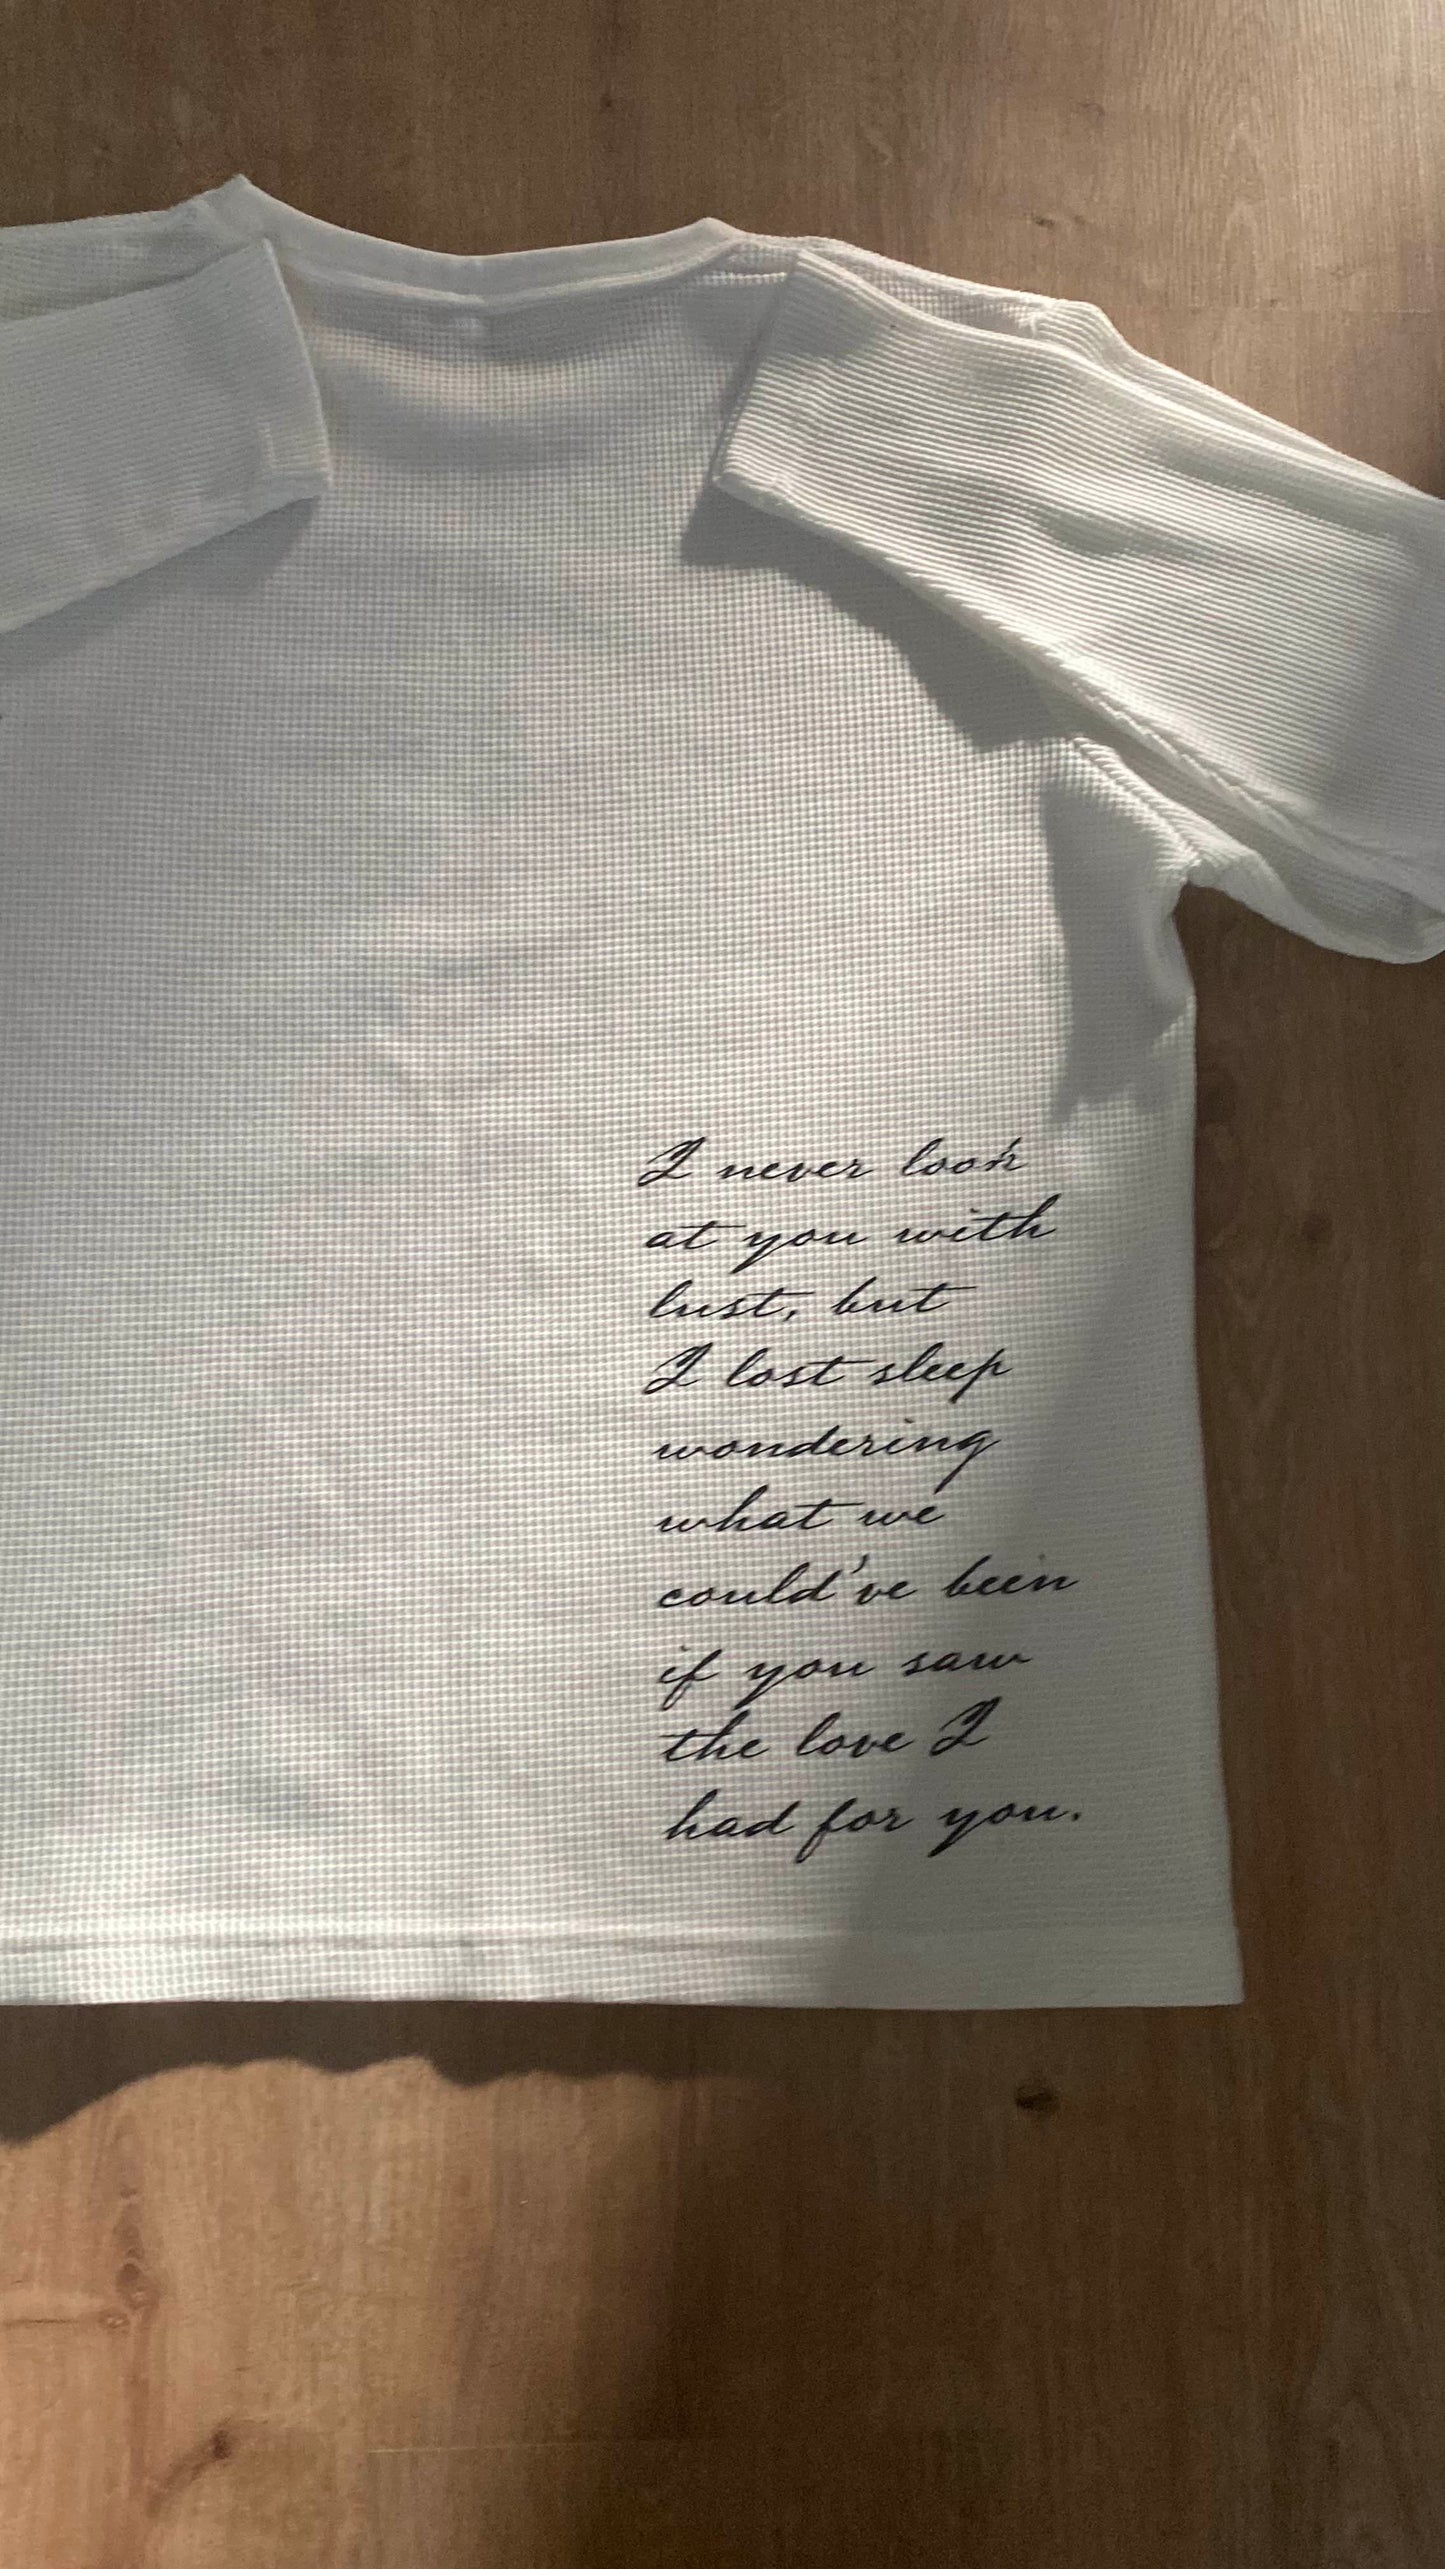 I never look
at you with
lust, but
I lost sleep
wondering
what we
could've been
if you saw
the love I
had for you.